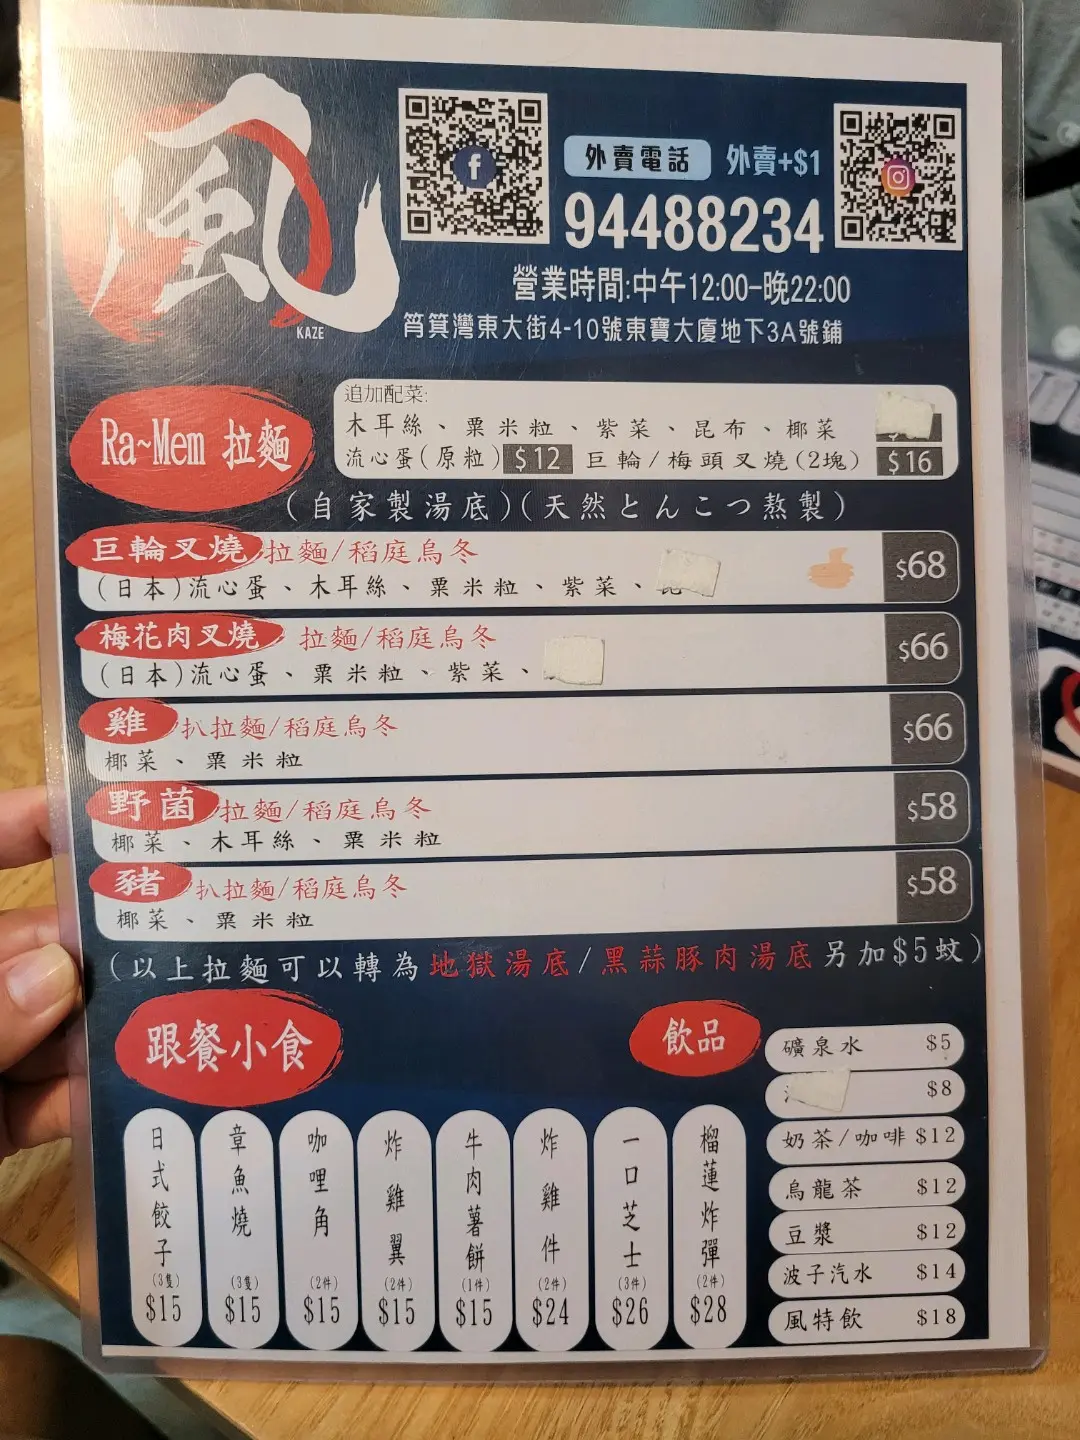 風
KAZE
外賣電話 外賣+$1
94488234
營業時間:中午12:00-晚22:00
筲箕灣東大街4-10號東寶大廈地下3A號鋪
Ra~Mem 拉麵
追加配菜:
木耳絲、粟米粒、紫菜、昆布、椰菜
流心蛋(原粒) $12 巨輪/梅頭叉燒(2塊) $16
(自家製湯底)(天然とんこつ熬製)
巨輪叉燒 拉麵/稻庭烏冬 $68
(日本)流心蛋、木耳絲、粟米粒、紫菜、
梅花肉叉燒 拉麵/稻庭烏冬 $66
(日本)流心蛋、粟米粒、紫菜、
雞扒拉麵/稻庭烏冬 $66
椰菜、粟米粒
野菌拉麵/稻庭烏冬 $58
椰菜、木耳絲、粟米粒
豬扒拉麵/稻庭烏冬 $58
椰菜、粟米粒
(以上拉麵可以轉為地獄湯底/黑蒜豚肉湯底另加$5蚊)
跟餐小食
日式餃子(3隻) $15
章魚燒(3隻) $15
咖哩角(2件) $15
炸雞翼(2件) $15
牛肉薯餅(1件) $15
炸雞件(2件) $24
一口芝士(3件) $26
榴蓮炸彈(2件) $28
飲品
礦泉水 $5
$8
奶茶/咖啡 $12
烏龍茶 $12
豆漿 $12
波子汽水 $14
風特飲 $18